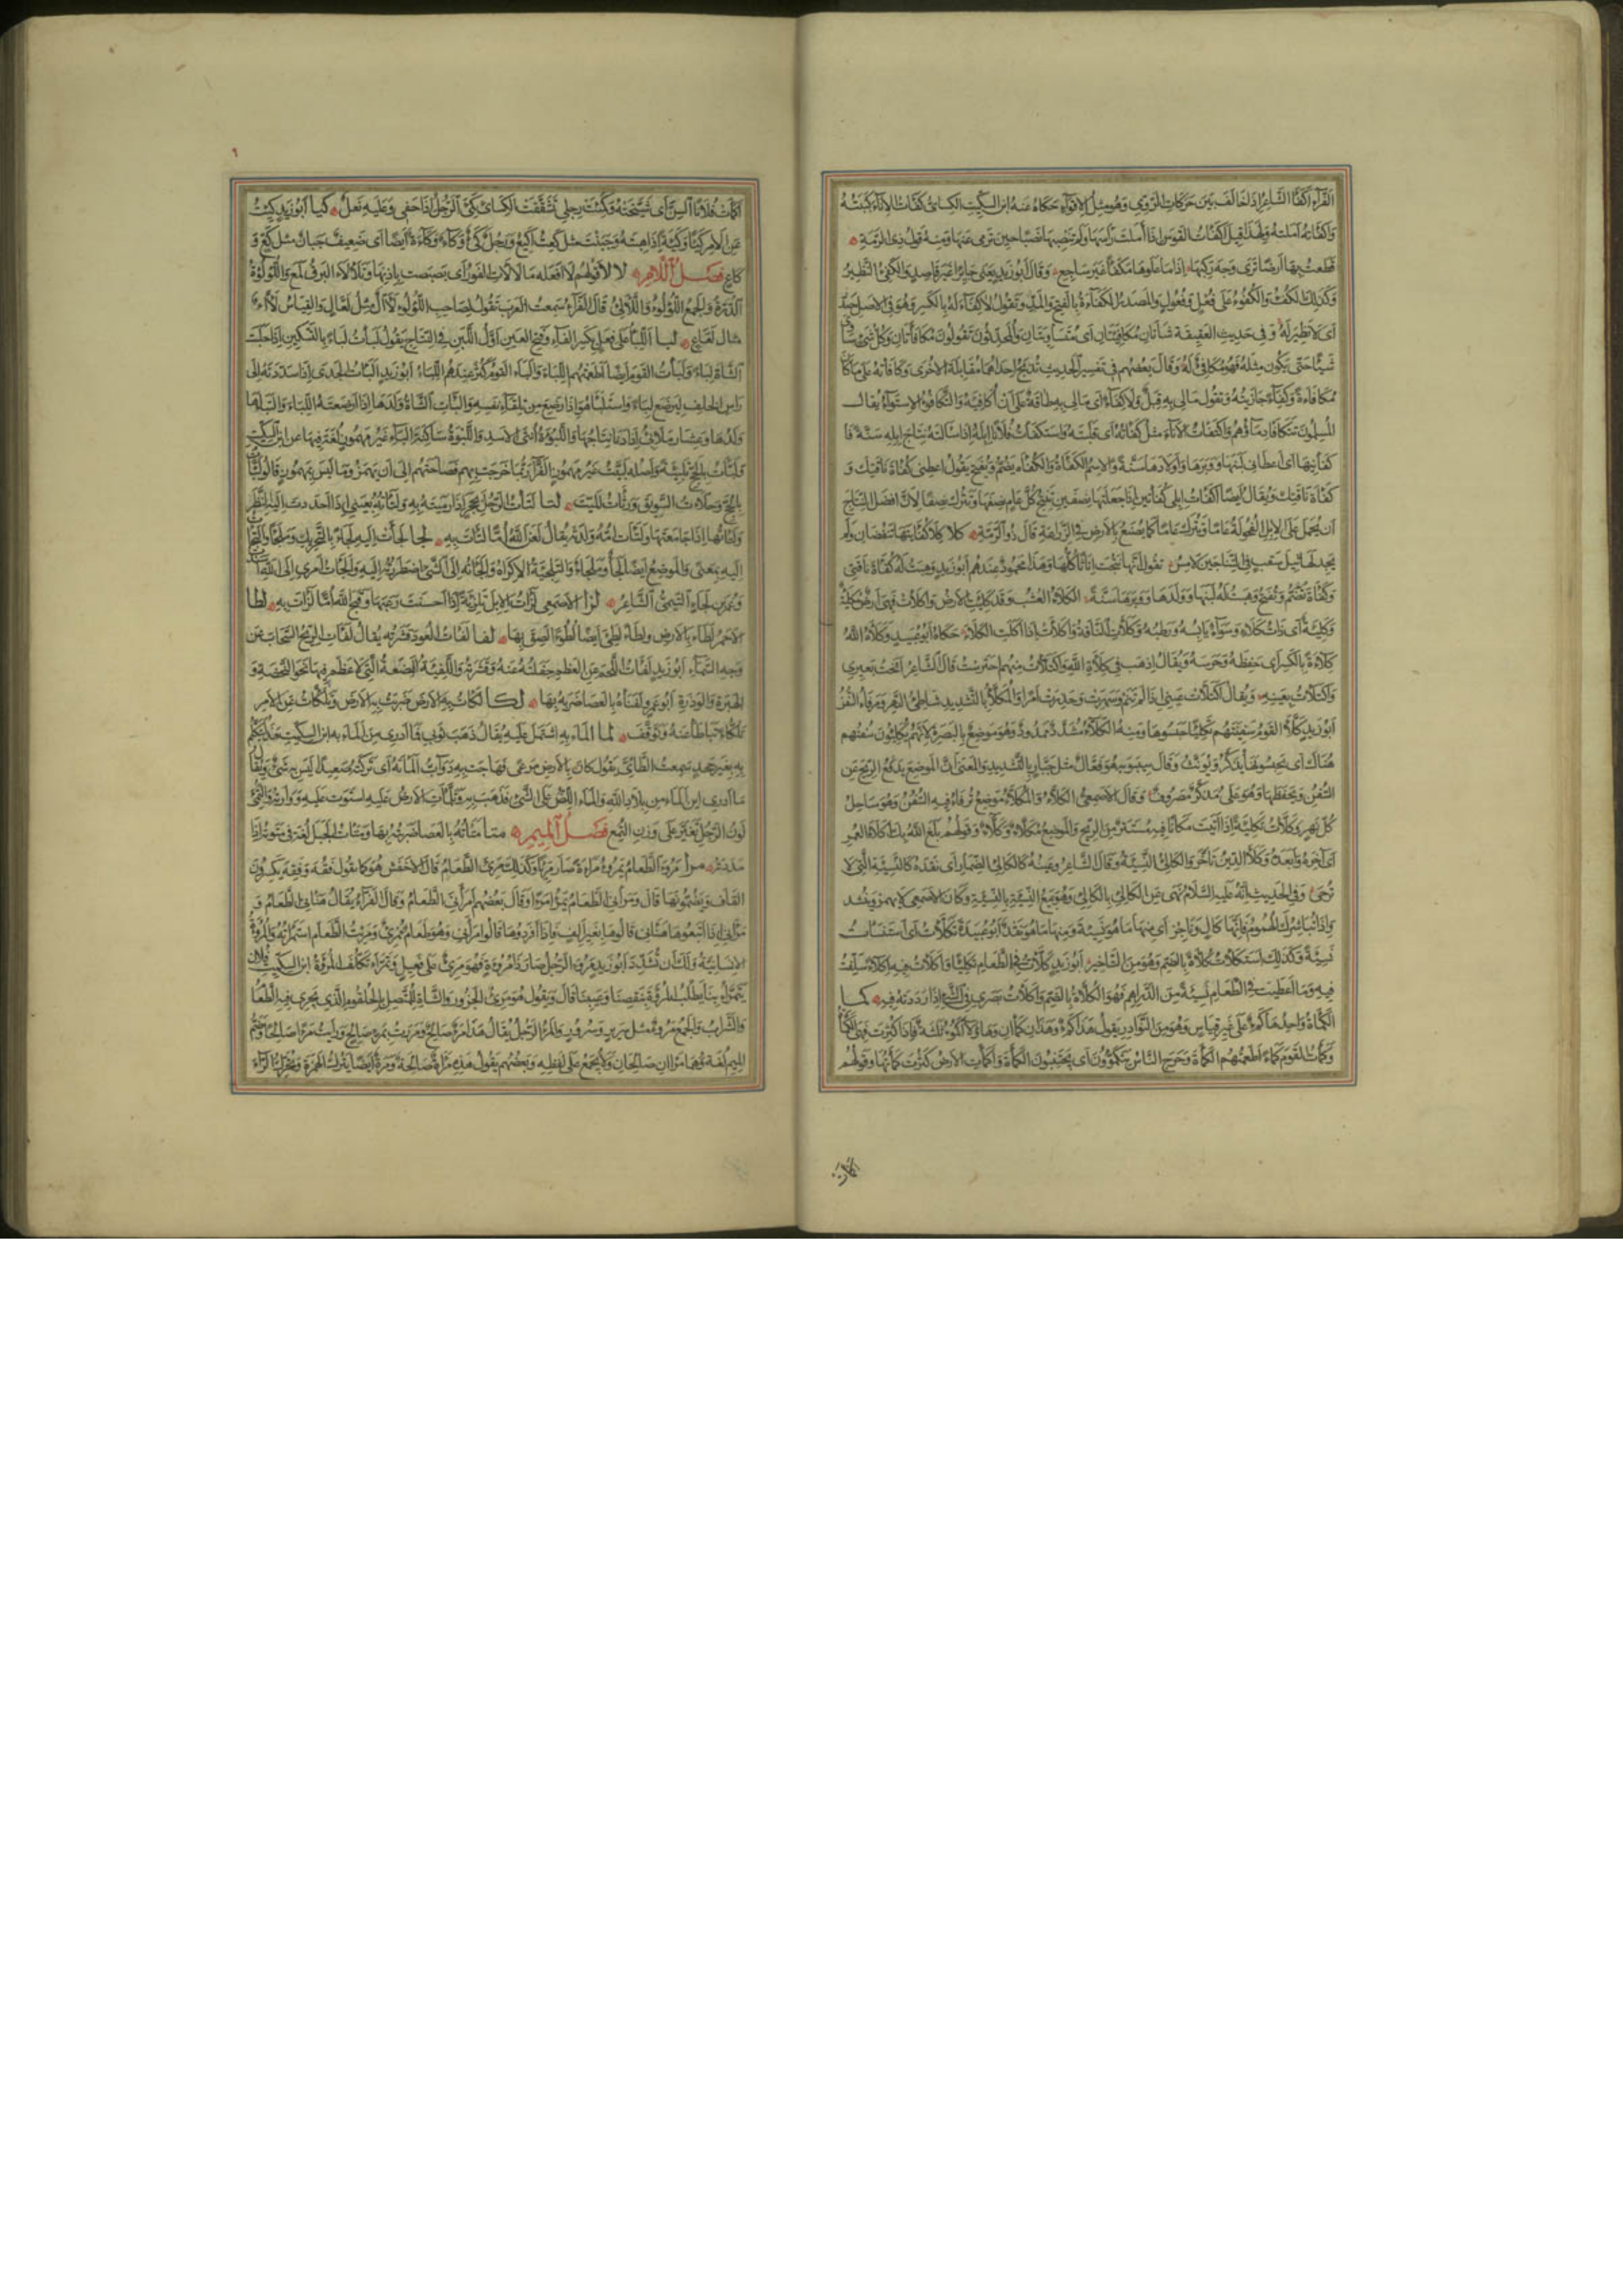 الفرّاء أكفأ الشاعر إذا خالف بين حركات الروي وهو مثل الإقواء حكاه عنه ابن السكيت الكسائي كفأت الإناء كببته
وأكفأته أملته ولهذا قيل أكفأت القوس إذا أملت رأسها ولم تنصبها نصبا حين ترمي عنها ومنه قول ذي الرمة
قطعت بها أرضا ترى وجه ركبها إذا ما علوها مكفأ غير ساجع وقال أبو زيد يعني جائرا غير قاصد والكفيء النظير
وكذلك الكفء والكفوء على فعل وفعول والمصدر الكفاءة بالفتح والمد وتقول لا كفاء له بالكسر وهو في الأصل مصدر
أي لا نظير له وفي حديث العقيقة شاتان مكافئتان أي متساويتان والمحدثون تقولون مكافأتان وكل شيء ساوى
شيئا حتى يكون مثله فهو مكافئ له وقال بعضهم في تفسير الحديث تذبح إحداهما مقابلة الأخرى وكافأته على ما كان
مكافاءة وكفاء جازيته وتقول ما لي به قبل ولا كفاء أي ما لي به طاقة على أن أكافئه والتكافؤ الاستواء يقال
المسلمون تتكافأ دماؤهم واكتفأت الإناء مثل كفأته أي قلبته واستكفأت فلانا إبله إذا سألته نتاج إبله سنة فأ
كفأنيها أي أعطاني لبنها ووبرها وأولادها سنة والاسم الكفأة والكفأة يضم ويفتح يقول أعطني كفأة ناقتك و
كفأة ناقتك ويقال أيضا أكفأت إبلي كفأتين إذا جعلتها نصفين تنتج كل عام نصفها وتترك نصفا لأن أفضل النتاج
أن تحمل على الإبل الفحولة عاما وتترك عاما كما يصنع بالأرض في الزراعة قال ذو الرمة كلا كفأتيها تنفضان ولم
يجد لها ثيل سقب في النتاجين لامس تقول إنها نتجت إناثا كلها وهذا محمود عندهم أبو زيد وهبت له كفأة ناقتي
وكفأة تضم وتفتح وهبت له لبنها وولدها ووبرها سنة الكلأ العشب وقد كلئت الأرض وأكلأت فهي أرض مكلئة
وكلئة أي ذات كلأ وسواء يابسه ورطبه وكلأت الناقة وأكلأت إذا أكلت الكلأ حكاه أبو عبيد وكلأه الله
كلاءة بالكسر أي حفظه وحرسه ويقال اذهب في كلاءة الله واكتلأت منهم احترست قال الشاعر أنخت بعيري
واكتلأت بعينه ويقال اكتلأت عيني إذا لم تنم وسهرت وحذرت أمرا والمكلأ بالتشديد شاطئ النهر ومرفأ السفن
أبو زيد كلأ القوم سفينتهم تكليئا حبسوها ومنه الكلاء مشدد ممدود وهو موضع بالبصرة لأنهم يكلئون سفنهم
هناك أي يحبسونها يذكر ويؤنث وقال سيبويه هو فعال مثل جبار بالتشديد والمعنى أن الموضع يدفع الريح عن
السفن ويحفظها وهو على هذا مذكر مصروف وقال الأصمعي الكلاء والمكلأ موضع ترفأ فيه السفن وهو ساحل
كل نهر وكلأت تكلئة إذا أتيت مكانا فيه مستتر من الريح والموضع مكلأ وكلاء وقولهم بلغ الله بك أكلأ العمر
أي آخره وأبعده وكلأ الدين تأخر والكالئ النسيئة وقال الشاعر وعينه كالكالئ الضمار أي نقده كالنسيئة التي لا
ترجى وفي الحديث أنه عليه السلام نهى عن الكالئ بالكالئ وهو بيع النسيئة بالنسيئة وكان الأصمعي لا يهمز وينشد
وإذا تباشرك الهموم فإنها كال وناجز أي منها ما هو نسيئة ومنها ما هو نقد أبو عبيدة تكلأت أي استنسأت
نسيئة وكذلك استكلأت كلأة بالضم وهو من التأخير أبو زيد كلأت في الطعام تكليئا وأكلأت فيه إكلاء سلفت
فيه وما أعطيت في الطعام نسيئة من الدراهم فهو الكلأة بالضم وأكلأت بصري في الشيء إذا رددته فيه كما
الكمأة واحدها كمء على غير قياس وهو من النوادر يقول هذا كمء وهذان كمآن وهؤلاء أكمؤ ثلاثة فإذا كثرت فهي الكمأة
وكمأت القوم كمأ أطعمتهم الكمأة وخرج الناس يتكمؤون أي يجتنون الكمأة وأكمأت الأرض كثرت كمأتها وقولهم
أكمأت
أكمأت فلانا السن أي شيخته وكمئت رجلي تشققت الكسائي كمئ الرجل إذا حفي وعليه نعل كيا أبو زيد كئت
عن الأمر كيئا وكيئة إذا هبته وجبنت مثل كعت أكيع ورجل كيء وكاء وكاءة أيضا أي ضعيف جبان مثل كع و
كاع فصل اللام لالأ قولهم لا أفعله ما لألأت الفور أي بصبصت بأذنابها وتلألأ البرق لمع واللؤلؤة
الدرة والجمع اللؤلؤ واللآلئ قال الفراء سمعت العرب تقول لصاحب اللؤلؤ لأآل مثل لعال والقياس لأاء
مثال لعاع لبا اللبأ على فعل بكسر الفاء وفتح العين أول اللبن في النتاج يقول لبأت لبأ بالتسكين إذا حلبت
الشاة لبأ ولبأت القوم أيضا أطعمتهم اللبأ وألبأ القوم كثر عندهم اللبأ أبو زيد ألبأت الجدي إذا سددته إلى
رأس الخلف ليرضع لبأ واستلبأ هو إذا رضع من تلقاء نفسه وألبأت الشاة ولدها إذا أرضعته اللبأ والتبأها
ولدها وعشار ملابئ إذا دنا نتاجها واللبؤة أنثى الأسد واللبوة ساكنة الباء غير مهموز لغة فيها عن ابن السكيت
ولبأت بالحج تلبئة وأصله لبيت غير مهموز الفراء ربما خرجت بهم فصاحتهم إلى أن يهمزوا ما ليس بمهموز قالوا لبأت
بالحج وحلأت السويق ورثأت الميت لتا لتأت الرجل بحجر إذا رميته به ولتأته بعيني إذا أحددت إليه النظر
ولتأتها إذا جامعتها ولتأت أمه ولدته يقال لعن الله أما لتأت به لجا لجأت إليه لجأ بالتحريك وملجأ والتجأت
إليه بمعنى والموضع أيضا لجأ وملجأ والتلجئة الإكراه وألجأته إلى الشيء اضطررته إليه وألجأت أمري إلى الله
وعمر بن لجأ التيمي الشاعر لزا الأصمعي لزأت الإبل تلزئة إذا أحسنت رعيتها وقبح الله أما لزأت به لطا
الأحمر لطأ بالأرض ولطئ أيضا لطوءا لصق بها لفا لفأت العود قشرته يقال لفأت الريح السحاب عن
وجه السماء أبو زيد لفأت اللحم عن العظم جفلته عنه وقشرته واللفيئة البضعة التي لا عظم فيها نحو النحضة و
الهبرة والوذرة أبو عمرو لفأه بالعصا ضربه بها لكا لكأت به الأرض ضربت به الأرض وتلكأت عن الأمر
تلكؤا تباطأ عنه وتوقف لما ألمأ به اشتمل عليه يقال ذهب ثوبي فما أدري من ألمأ به ابن السكيت
به بغير جحد سمعت الطائي يقول كان بالأرض مرعى فهاجت به دواب ألمأته أي تركته صعيدا ليس به شيء ويقال
ما أدري أين ألمأ من بلاد الله وألمأ اللص على الشيء فذهب به وتلمأت الأرض عليه استوت عليه ووارته والتمئ
لون الرجل تغير على وزن التمع فصل الميم متا متأته بالعصا ضربته بها ومتأت الحبل لغة في متوته إذا
مددته مرا مرؤ الطعام يمرؤ مراءة صار مريئا وكذلك مرئ الطعام قال الأخفش هو كما تقول فقه وفقه يكسرون
القاف ويضمونها قال ومرأني الطعام يمرأ مرءا وقال بعضهم أمرأني الطعام وقال الفراء يقال هنأني الطعام و
مرأني إذا أتبعوها هنأني قالوها بغير ألف فإذا أفردوها قالوا أمرأني وهو طعام ممرئ ومرئت الطعام استمرأته والمروءة
الإنسانية ولك أن تشدد أبو زيد مرؤ الرجل صار ذا مروءة فهو مريء على فعيل وتمرأ تكلف المروءة ابن السكيت فلان
يتمرأ بنا أي يطلب المروءة بنقصنا وعيبنا قال ويقول هو مريء الجزور والشاة للمتصل بالحلقوم الذي يجري فيه الطعام
والشراب والجمع مرؤ مثل سرير وسرر والمرء الرجل يقال هذا مرء صالح ومررت بمرء صالح ورأيت مرءا صالحا وضم
الميم لغة وهما مرآن صالحان ولا يجمع على لفظه وبعضهم يقول هذه مرأة صالحة ومرة أيضا بترك الهمزة وتحريك الراء